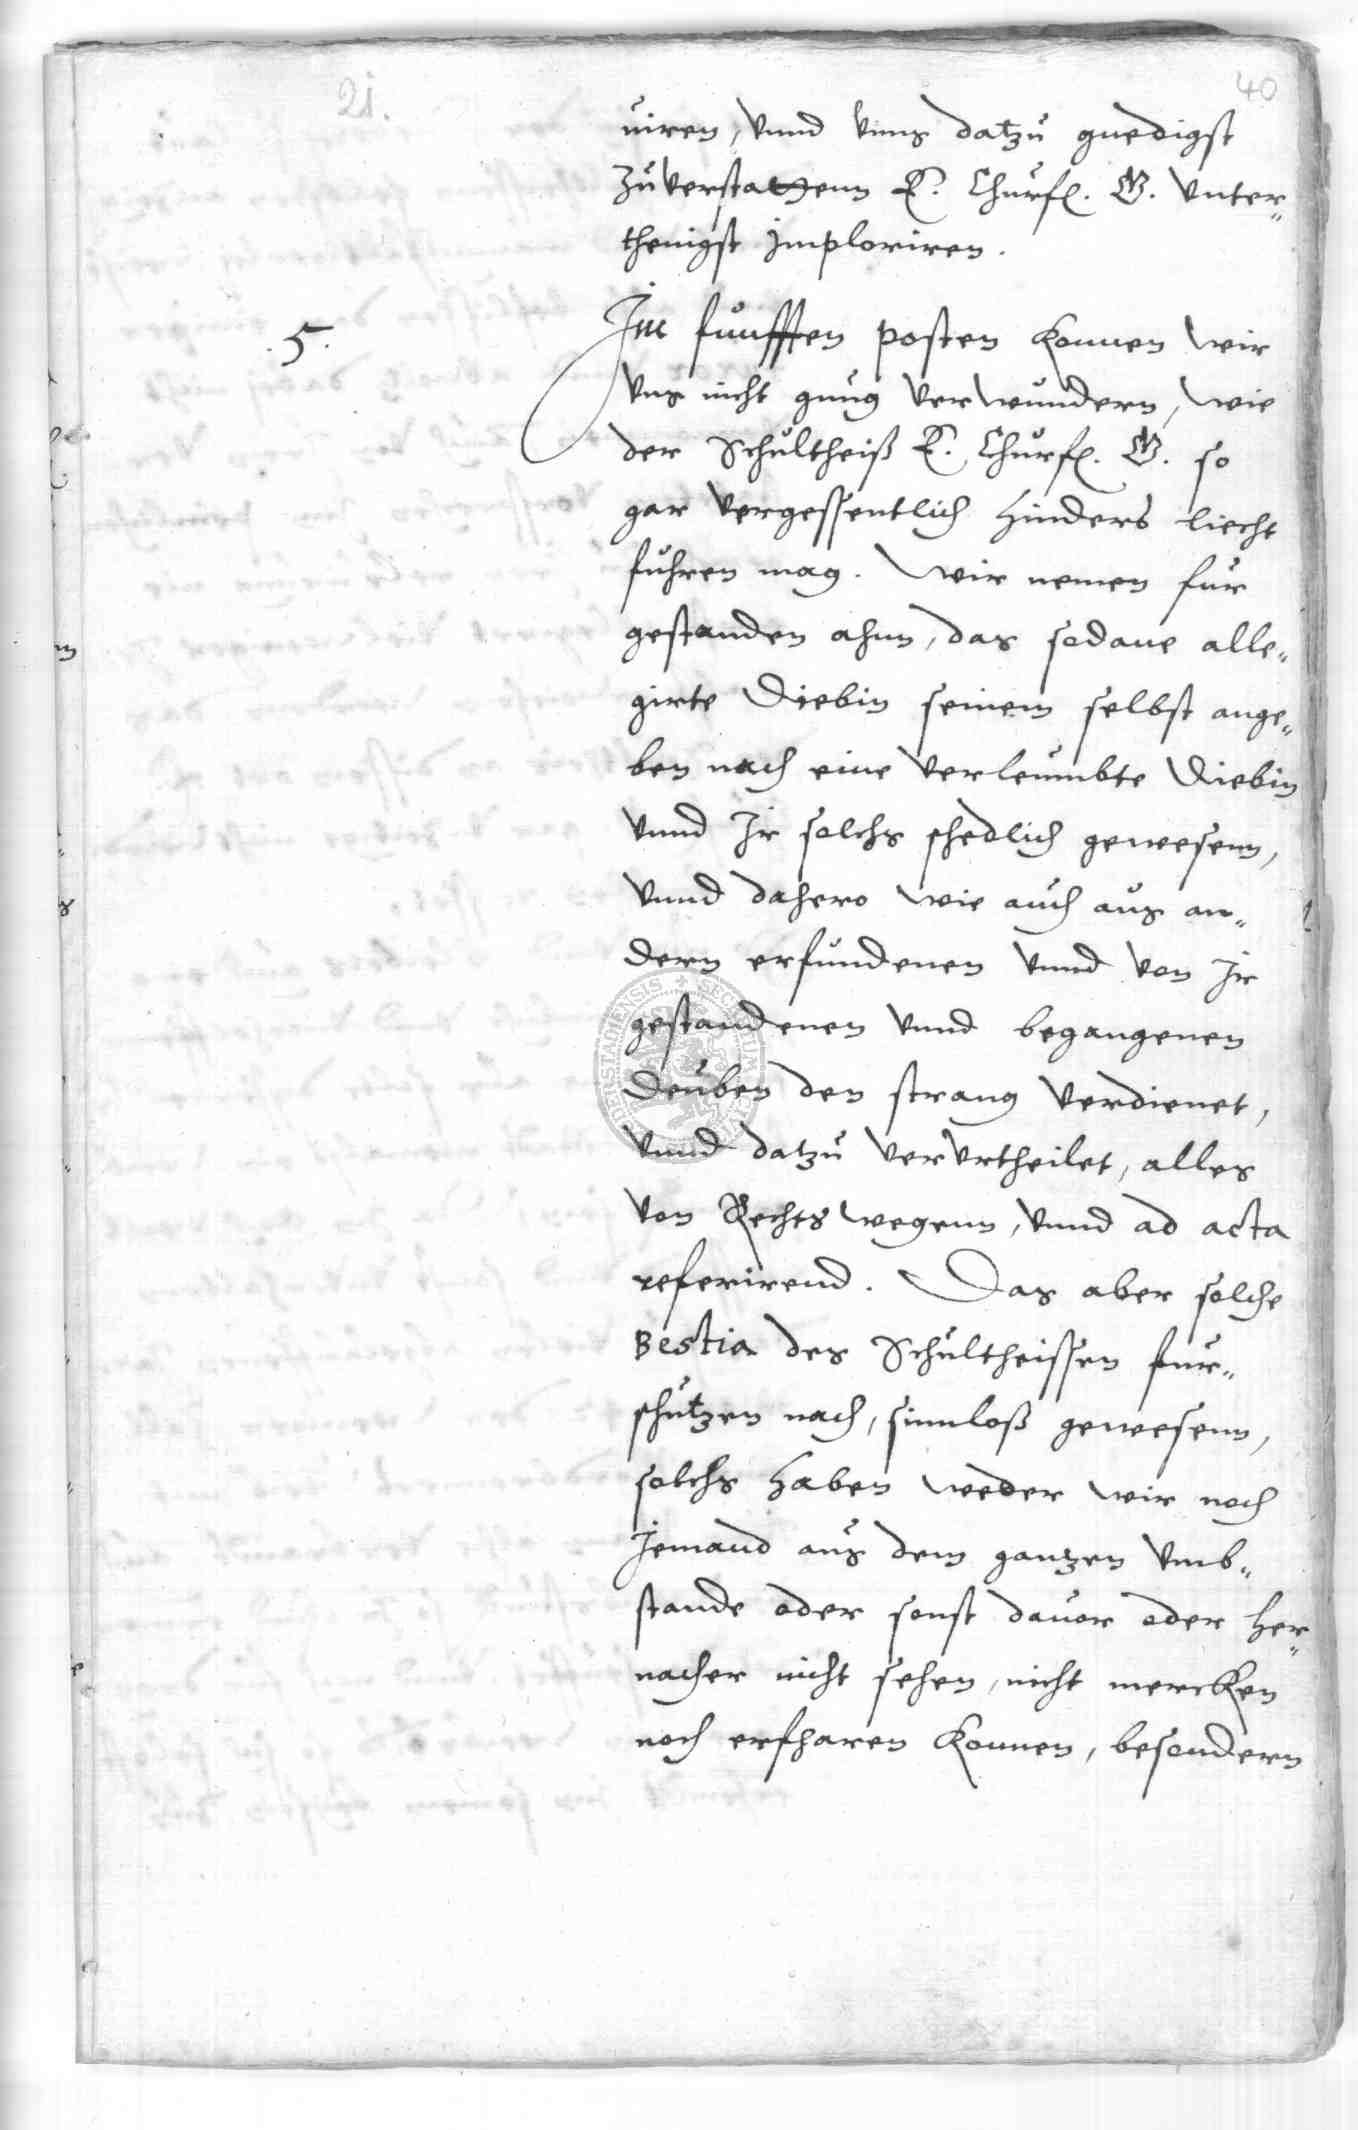 21.
40
uiren, vnnd vnns datzu gnedigst
zuuerstattenn E. Churfl. G. vnter„
thenigst imploriren.
5.
Im funfften posten konnen wir
vns nicht gnug verwundern, wie
der Schultheiß E. Churfl. G. so
gar vergessentlich hinders liecht
fuhren mag. Wir nemen fur
gestanden ahnn, das sodane alle„
girte Diebin seinem selbst ange„
ben nach eine verleumbte Diebin
vnnd Jr solchs schedlich gewesenn,
vnnd dahero wie auch aus an„
dern erfundenen vnnd von Jr
gestandenen vnnd begangenen
Deuben den strang verdienet,
vnnd datzu verurtheilet, alles
von Rechts wegenn, vnnd ad acta
referirend. Das aber solche
Bestia des Schultheissen fur„
schutzen nach, sinnloß gewesenn,
solchs haben weder wir noch
Jemand aus dem gantzen vmb„
stande oder sonst dauor oder her„
nacher nicht sehen, nicht mercken
noch erfharen konnen, besondern